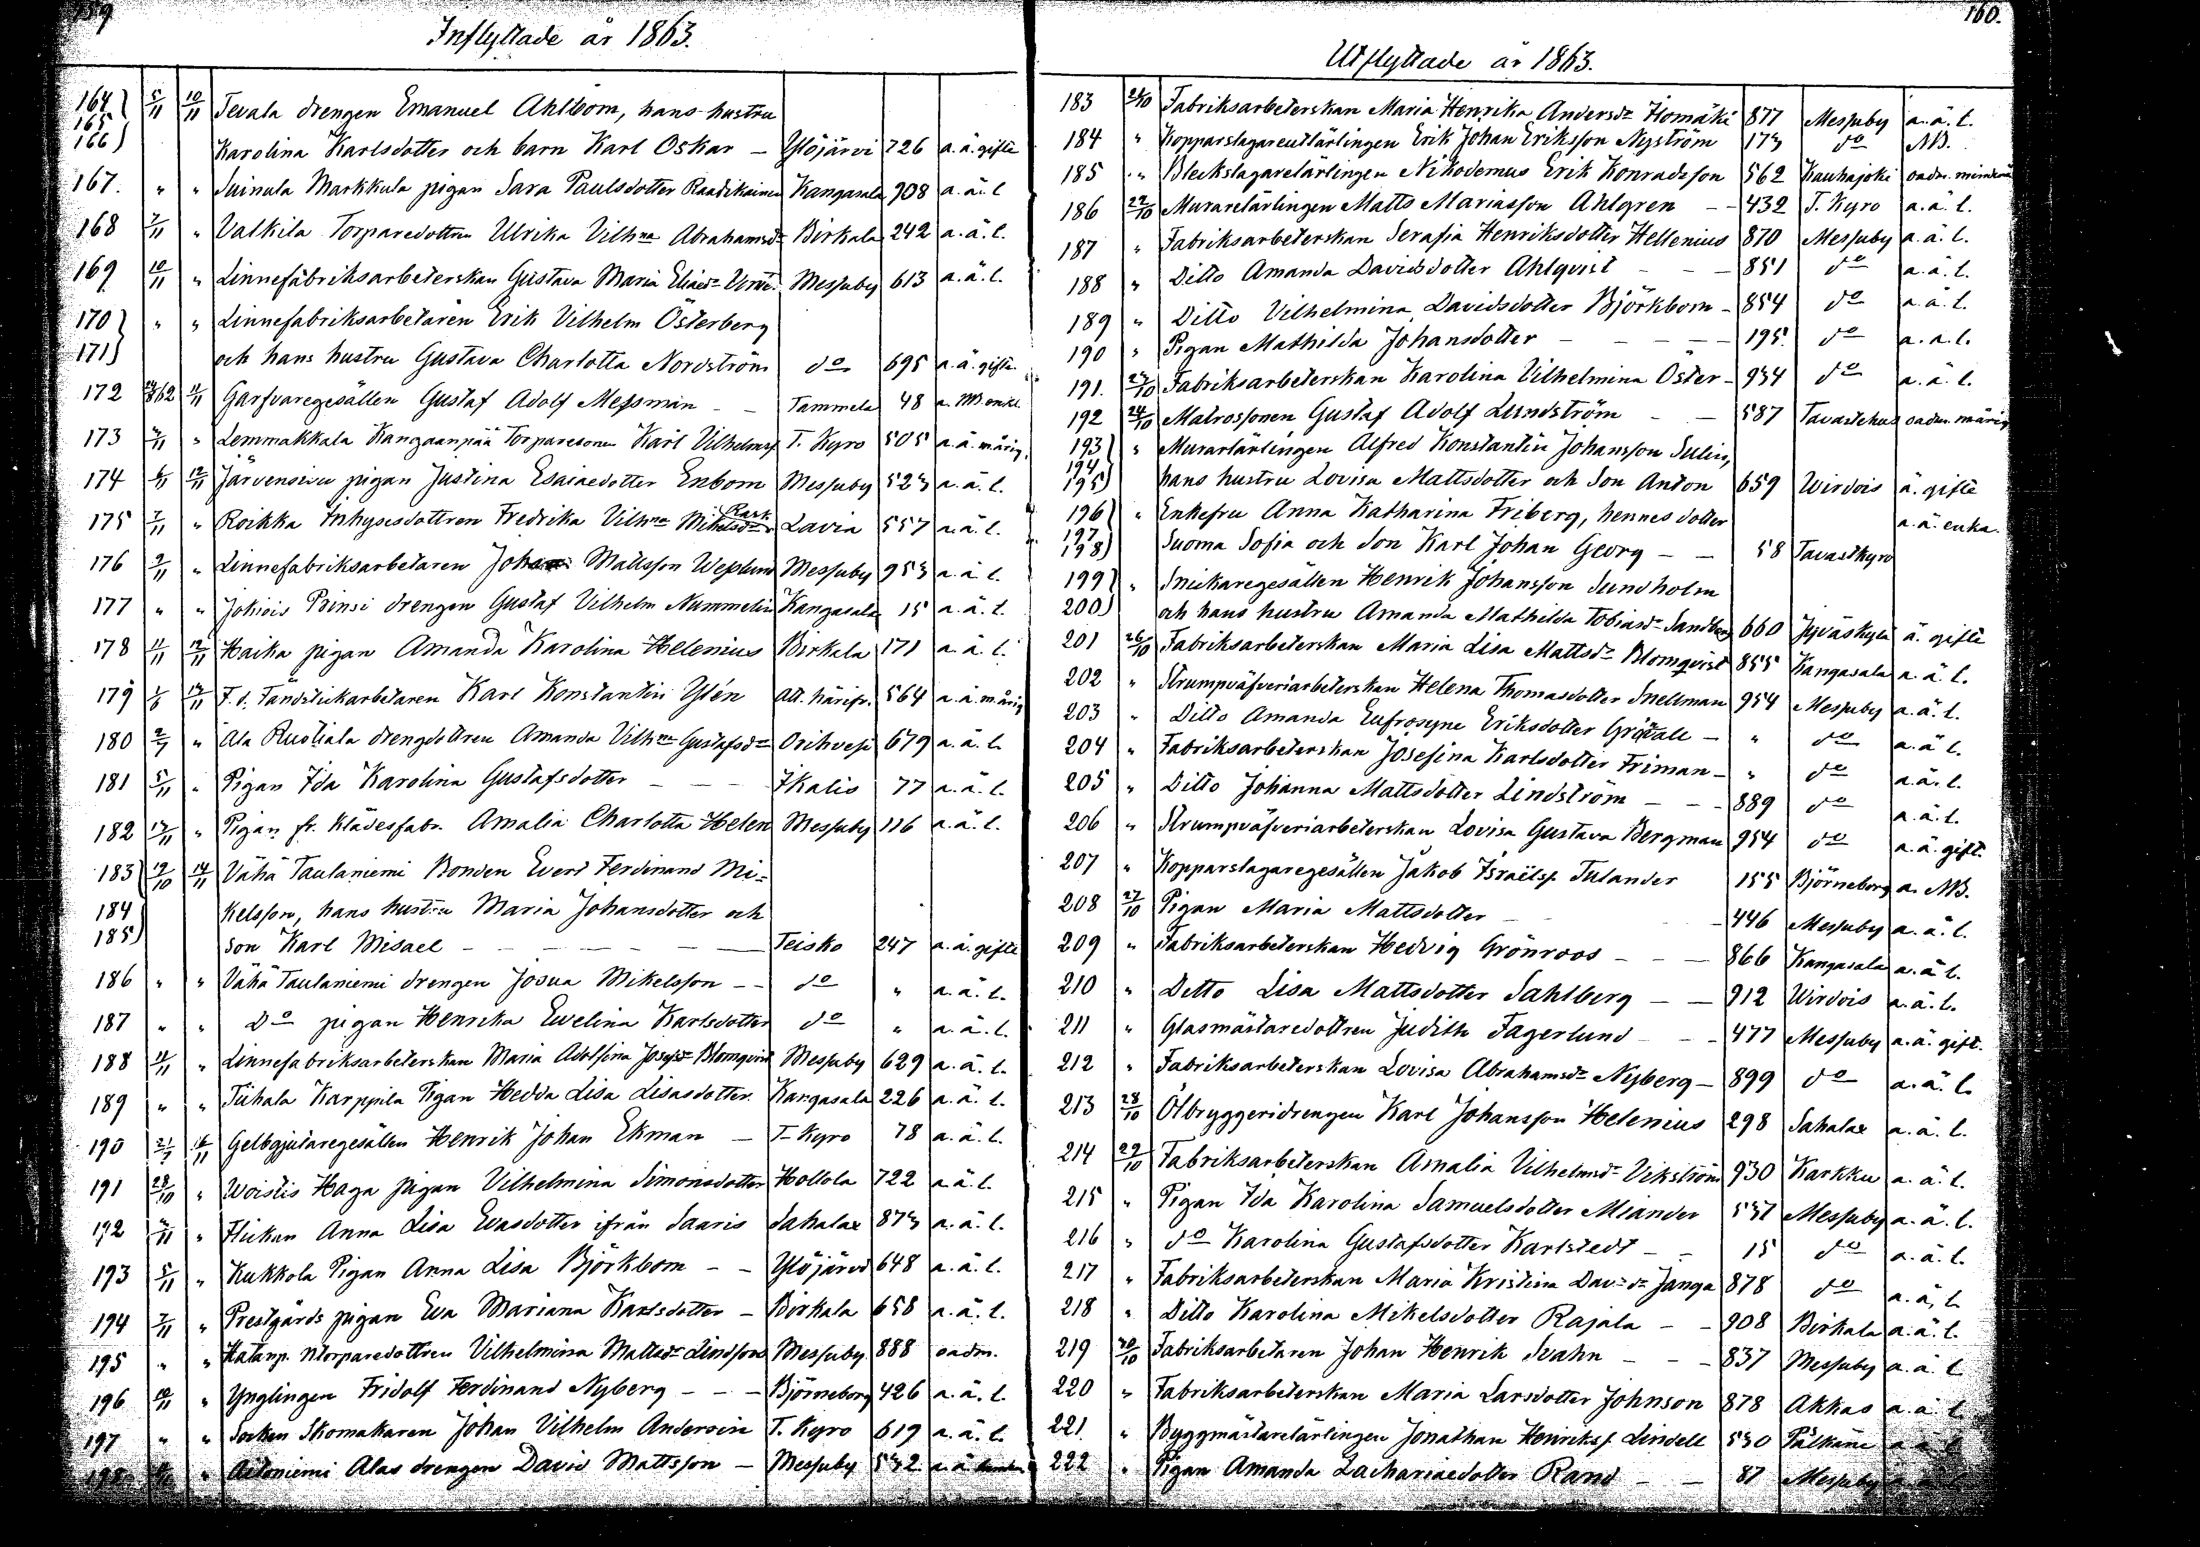 159
Inflyttade år 1863.
164 5/11 10/11 Tevala drengen Emanuel Ahlbom, hans hustru
165
166 Karolina Karlsdotter och barn Karl Oskar — Ylöjärvi 726 a.ä. gifte
167. " " Suinula Markkula pigan Sara Paulsdotter Raadikainen Kangasala 908 a.ä.l
168 7/11 " Valkila Torparedottren Ulrika Vilhna Abrahamsdr Birkala 242 a.ä.l.
169 10/11 " Linnefabriksarbeterskan Gustava Maria Eliaedr Messuby 613 a.ä.l.
170 " " Linnefabriksarbetaren Erik Vilhelm Österberg
171 och hans hustru Gustava Charlotta Nordström do 695 a.ä. gifte
172 11/11 Garfvaregesällen Gustaf Adolf Messman - - Tammela 48 a. NB enkl.
173 " Lemmakkala Kangaanpää Torparesonen Karl Vilhelmsf T. Kyro 505 a.ä. märig.
174 6/11 12/11 Järvensivu pigan Justina Esaiaedotter Enbom Messuby 523 a.ä.l.
175 7/11 " Roikka Inhysesdottren Fredrika Vilhna Mikelsdr Rask Lavia 557 a.ä.l.
176 9/11 " Linnefabriksarbetaren Johan Mattsson Weslund Messuby 953 a.ä.l.
177 " " Jokiois Prinsi drengen Gustaf Vilhelm Nummelin Kangasala 15 a.ä.l.
178 11/11 12/11 Haika pigan Amanda Karolina Helenius Birkala 171 a.ä.l.
179 13/11 F.d. Tändstickarbetaren Karl Konstantin Ylén Att. härifr. 564 a.ä. märig
180 " Ala Ruotiala drengdottren Amanda Vilhna Gustafsdr Orihvesi 679 a.ä.l.
181 5/11 " Pigan Ida Karolina Gustafsdotter - - - Ikalis 77 a.ä.l.
182 13/11 " Pigan fr. Klädesfabr. Amalia Charlotta Helen Messuby 116 a.ä.l.
183 19/10 14/11 Vähä Taulaniemi Bonden Evert Ferdinand Mi=
184 kelsson, hans hustru Maria Johansdotter och
185 son Karl Misael - - - - - - Teisko 247 a.ä. gifte
186 " " Vähä Taulaniemi drengen Josua Mikelsson - - do " a.ä.l.
187 " " do pigan Henrika Ewelina Karlsdotter do " a.ä.l.
188 14/11 " Linnefabriksarbeterskan Maria Adolfina Josefsdr Blomqvist Messuby 629 a.ä.l.
189 " " Tiihala Karppila Pigan Hedda Lisa Lisasdotter Kangasala 226 a.ä.l.
190 16/11 Gelbgjutaregesällen Henrik Johan Ekman — T- Kyro 78 a.ä.l.
191 28/10 " Woistis Haga pigan Vilhelmina Simonsdotter Hollola 722 a.ä.l.
192 " Flickan Anna Lisa Evasdotter ifrån Saaris Sahalax 873 a.ä.l.
193 5/11 " Kukkola Pigan Anna Lisa Björkbom - - Ylöjärvi 648 a.ä.l.
194 7/11 " Prestgårds pigan Eva Mariana Karlsdotter - Birkala 658 a.ä.l.
195 " " Hatanp. ntorparedottren Vilhelmina Mattsdr Lindfors Messuby 888 oadm.
196 10/11 " Ynglingen Fridolf Ferdinand Nyberg - - - Björneborg 426 a.ä.l.
197 " " Socken Skomakaren Johan Vilhelm Andersin T. Kyro 619 a.ä.l.
198 " Aitoniemi Alas drengen David Mattsson - Messuby 532 a.ä.
160.
Utflyttade år 1863.
183 21/10 Fabriksarbeterskan Maria Henrika Andersdr Homäki 877 Messuby a.ä.l.
184 " Kopparslagarelärlingen Erik Johan Eriksson Nyström 173 do NB.
185 " Bleckslagarelärlingen Nikodemus Erik Konradsson 562 Kauhajoki oadm. minderå
186 22/10 Murarelärlingen Matts Mariasson Ahlgren - - 432 T. Kyro a.ä.l.
187 " Fabriksarbeterskan Serafia Henriksdotter Hellenius 870 Messuby a.ä.l.
188 " Ditto Amanda Davidsdotter Ahlqvist - - - 851 do a.ä.l.
189 " Ditto Vilhelmina Davidsdotter Björkbom - 854 do a.ä.l.
190 " Pigan Mathilda Johansdotter - - - - - 195. do a.a.l.
191. 23/10 Fabriksarbeterskan Karolina Vilhelmina Öster- 934 do a.ä.l.
192 24/10 Matrossonen Gustaf Adolf Lundström - - 587 Tavastehus oadm. märig
193 " Murarlärlingen Alfred Konstantin Johansson Sulin,
194
195 hans hustru Lovisa Mattsdotter och Son Anton 659 Wirdois ä. gifte
196 " Enkefru Anna Katharina Friberg, hennes dotter a.ä. enka.
197
198 Suoma Sofia och Son Karl Johan Georg - - 58 Tavastkyro
199 " Snickaregesällen Henrik Johansson Sundholm
200 och hans hustru Amanda Mathilda Tobiasdr Sandberg 660 Jyväskylä ä. gifte
201 26/10 Fabriksarbeterskan Maria Lisa Mattsdr Blomqvist 855 Kangasala a.ä.l.
202 " Strumpväfveriarbeterskan Helena Thomasdotter Snellman 954 Messuby a.ä.l.
203 " Ditto Amanda Eufrosyne Eriksdotter Grövall - " do a.ä.l.
204 " Fabriksarbeterskan Josefina Karlsdotter Friman - " do a.ä.l.
205 " Ditto Johanna Mattsdotter Lindström - - - 889 do a.ä.l.
206 " Strumpväfveriarbeterskan Lovisa Gustava Bergman 954 do a.ä. gift.
207 " Kopparslagaregesällen Jakob Israëlsf. Tulander 155 Björneborg a. NB.
208 27/10 Pigan Maria Mattsdotter - 446 Messuby a.ä.l.
209 " Fabriksarbeterskan Hedvig Grönroos - - - 866 Kangasala a.ä.l.
210 " Ditto Lisa Mattsdotter Sahlberg - - 912 Wirdois a.ä.l.
211 " Glasmästaredottren Judith Fagerlund - - - 477 Messuby a.ä. gift.
212 " Fabriksarbeterskan Lovisa Abrahamsdr Nyberg - 899 do a.ä.l.
213 28/10 Ölbryggeridrengen Karl Johansson Helenius 298 Sahalax a.ä.l.
214 29/10 Fabriksarbeterskan Amalia Vilhelmsdr Vikström 930 Karkku a.ä.l.
215 " Pigan Ida Karolina Samuelsdotter Miander 537 Messuby a.ä.l.
216 " do Karolina Gustafsdotter Karlstedt - - 15 do a.ä.l.
217 " Fabriksarbeterskan Maria Kristina Dav-dr Janga 878 do a.ä.l.
218 " Ditto Karolina Mikelsdotter Rajala - - 908 Birkala a.ä.l.
219 30/10 Fabriksarbetaren Johan Henrik Svahn - - - 837 Messuby a.ä.l
220 " Fabriksarbeterskan Maria Larsdotter Johnson 878 Akkas a.ä.l
221. " Byggmästarelärlingen Jonathan Henriksf. Lindell 530 Pälkäne a.ä.l
222 " Pigan Amanda Zachariaedotter Rand - - 87 Messuby